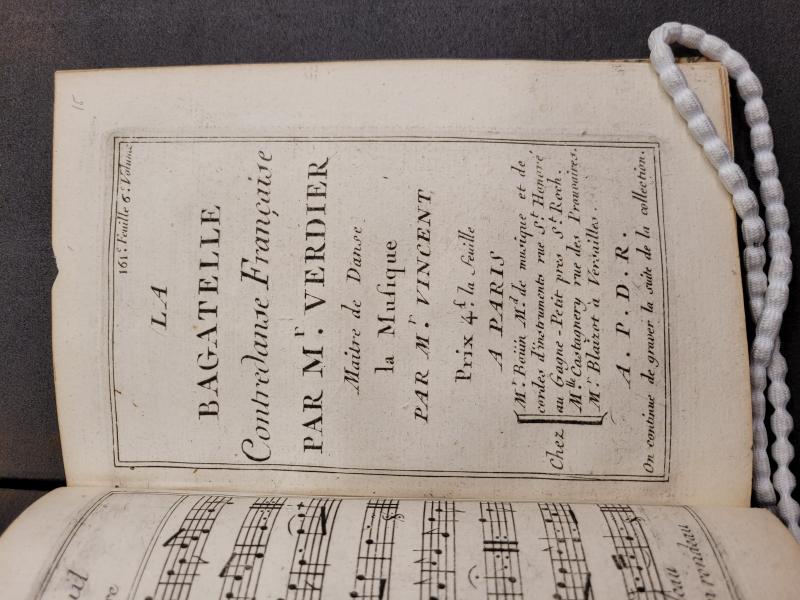 15
161.e Feuille 6.e Volume
LA
BAGATELLE
Contredanse Française
PAR Mr. VERDIER
Maître de Danse
la Musique
PAR Mr. VINCENT
Prix 4.s la feuille
A PARIS
Chez
Mr. Boüin Md. de musique et de
cordes d'instruments rue St. Honoré
au Gagne-Petit pres St. Roch.
Mlle Castagnery rue des Prouvaires.
Mr. Blaizot à Versailles.
A. P. D. R.
On continue de graver la suite de la collection.